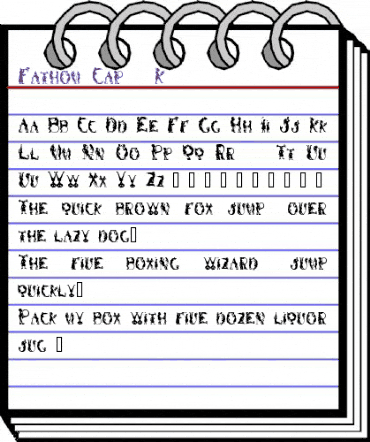 Fathom Cap K
Aa Bb Cc Dd Ee Ff Gg Hh Ii Jj Kk
Ll Mm Nn Oo Pp Qq Rr Tt Uu
Vv Ww Xx Yy Zz
The quick brown fox jump over
the lazy dog
The five boxing wizard jump
quickly
Pack my box with five dozen liquor
jug